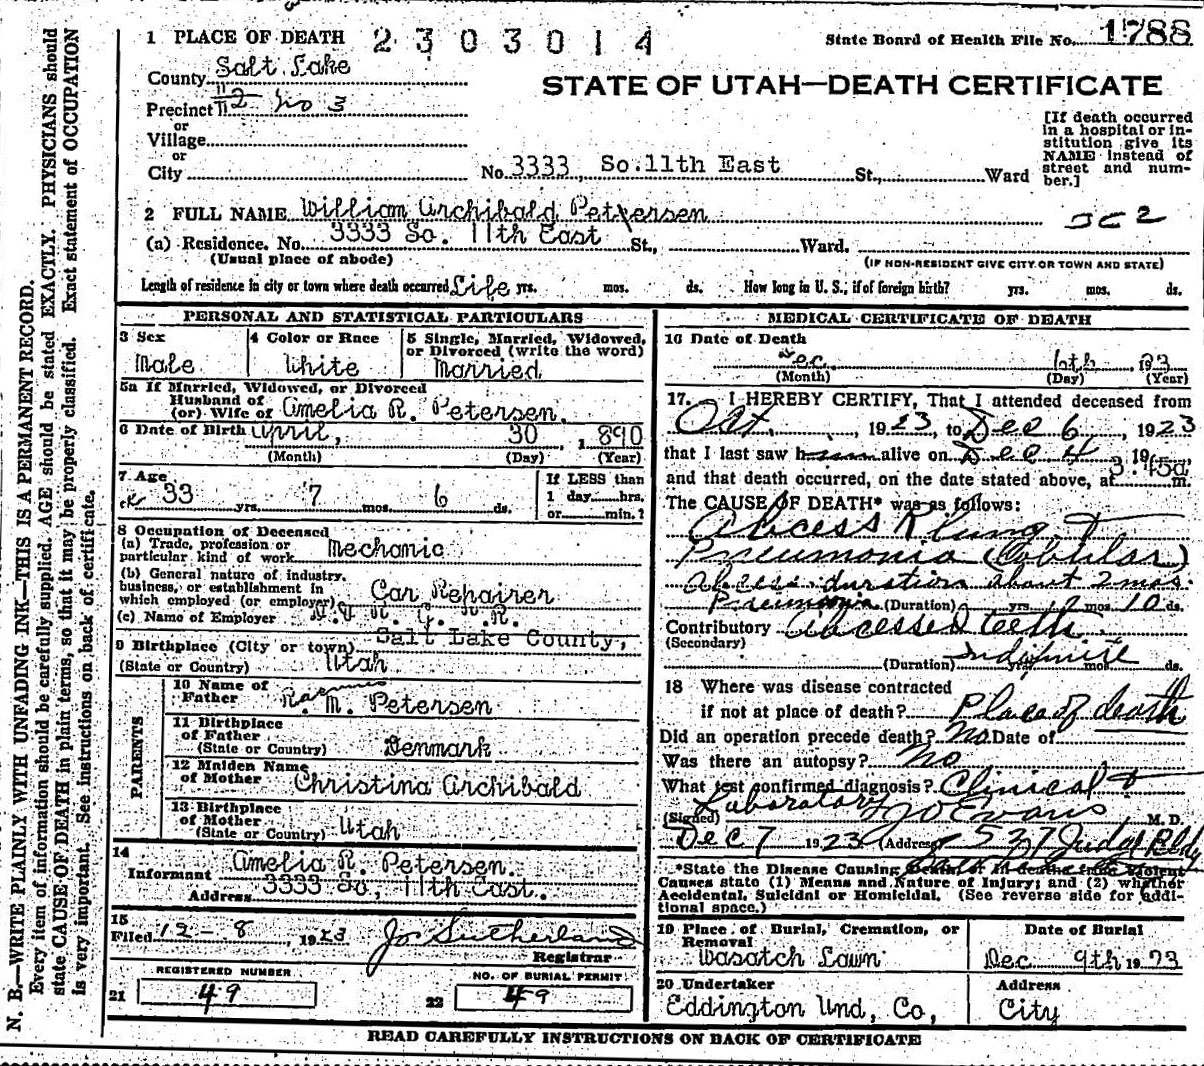 1 PLACE OF DEATH 2303014 State Board of Health File No. 1788
County Salt Lake
STATE OF UTAH—DEATH CERTIFICATE
Precinct #2 No 3
or
Village
or
City No. 3333 So. 11th East St., Ward
[If death occurred
in a hospital or in-
stitution give its
NAME instead of
street and num-
ber.]
2 FULL NAME William Archibald Petersen
(a) Residence. No. 3333 So. 11th East St., Ward.
(Usual place of abode) (IF NON-RESIDENT GIVE CITY OR TOWN AND STATE)
Length of residence in city or town where death occurred Life yrs. mos. ds. How long in U. S., if of foreign birth? yrs. mos. ds.
PERSONAL AND STATISTICAL PARTICULARS
3 Sex 4 Color or Race 5 Single, Married, Widowed,
or Divorced (write the word)
Male White Married
5a If Married, Widowed, or Divorced
Husband of
(or) Wife of Amelia R. Petersen.
6 Date of Birth April, 30 1890
(Month) (Day) (Year)
7 Age If LESS than
33 yrs. 7 mos. 6 ds. 1 day hrs.
or min.?
8 Occupation of Deceased
(a) Trade, profession or
particular kind of work Mechanic
(b) General nature of industry,
business, or establishment in
which employed (or employer) Car Repairer
(c) Name of Employer
9 Birthplace (City or town) Salt Lake County,
(State or Country) Utah
PARENTS
10 Name of
Father Rasmus M. Petersen
11 Birthplace
of Father
(State or Country) Denmark
12 Maiden Name
of Mother Christina Archibald
13 Birthplace
of Mother
(State or Country) Utah
14
Informant Amelia R. Petersen.
Address 3333 So, 11th East.
15
Filed 12-8, 1923 Jo Sutherland
Registrar
REGISTERED NUMBER NO. OF BURIAL PERMIT
21 49 22 49
MEDICAL CERTIFICATE OF DEATH
16 Date of Death
Dec. 6th 1923
(Month) (Day) (Year)
17. I HEREBY CERTIFY, That I attended deceased from
Oct, 1923, to Dec 6, 1923
that I last saw him alive on Dec 4 19
and that death occurred, on the date stated above, at 3:45a m.
The CAUSE OF DEATH* was as follows:
Abscess R lung +
Pneumonia (Lobular)
Abcess duration about 2 mos.
Pneumonia (Duration) yrs. mos. 10 ds.
Contributory Abcessed teeth
(Secondary)
(Duration) Indefinite yrs. mos. ds.
18 Where was disease contracted
if not at place of death? Place of death
Did an operation precede death? No Date of
Was there an autopsy? No
What test confirmed diagnosis? Clinical +
Laboratory
(Signed) J O Evans M. D.
Dec 7 1923 (Address) 537 Judge Bldg
*State the Disease Causing Death, or in deaths from Violent
Causes state (1) Means and Nature of Injury; and (2) whether
Accidental, Suicidal or Homicidal. (See reverse side for addi-
tional space.)
19 Place of Burial, Cremation, or Date of Burial
Removal
Wasatch Lawn Dec 9th 1923
20 Undertaker Address
Eddington Und, Co, City
READ CAREFULLY INSTRUCTIONS ON BACK OF CERTIFICATE
N. B.—WRITE PLAINLY WTH UNFADING INK—THIS IS A PERMANENT RECORD.
Every item of information should be carefully supplied. AGE should be stated EXACTLY. PHYSICIANS should
state CAUSE OF DEATH in plain terms, so that it may be properly classified. Exact statement of OCCUPATION
is very important. See instructions on back of certificate.